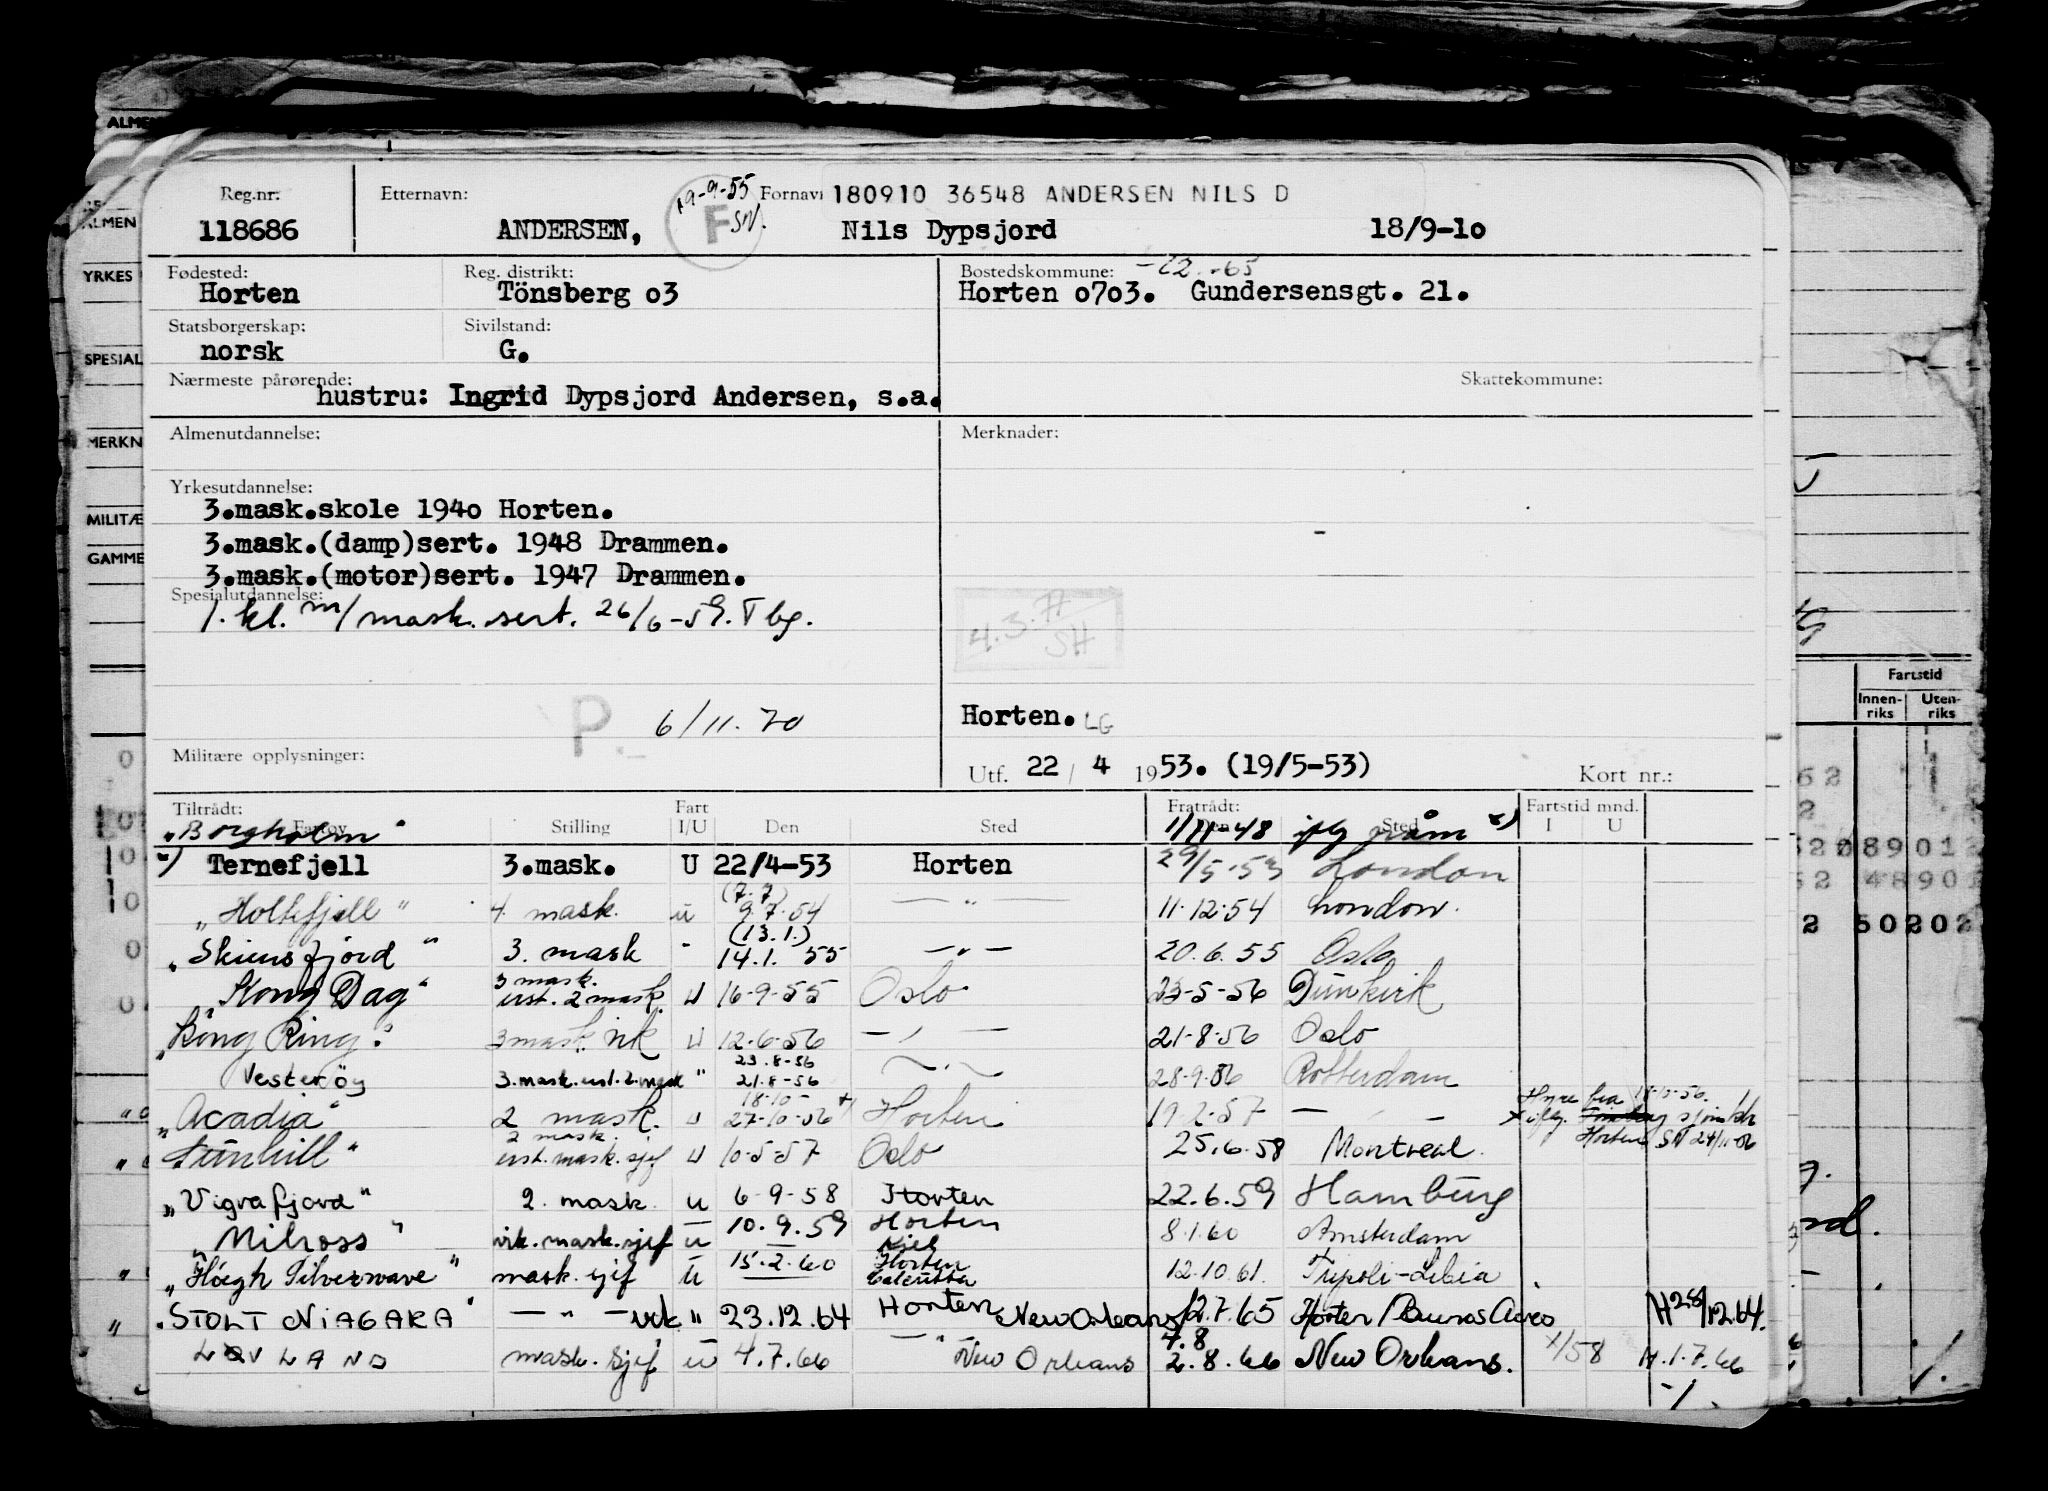 Reg.nr. Etternavn: 19-9-55 Fornavn 180910 36548 ANDERSEN NILS D
118686 ANDERSEN, F SN. Nils Dypsjord 18/9-1o
Fødested: Reg. distrikt: Bostedskommune: -65
Horten Tönsberg o3 Horten o7o3. Gundersensgt. 21.
Statsborgerskap: Sivilstand:
norsk G.
Nærmeste pårørende: Skattekommune:
hustru: Ingrid Dypsjord Andersen, s.a.
Almenutdannelse: Merknader:
Yrkesutdannelse:
3.mask.skole 194o Horten.
3.mask.(damp)sert. 1948 Drammen.
3.mask.(motor)sert. 1947 Drammen.
Spesialutdannelse:
1. kl. m/mask. sert. 26/6-59. Tbg.
4.3.77
SH
P. 6/11.70 Horten. LG
Militære opplysninger: Utf. 22 / 4 1953. (19/5-53) Kort nr.:
Tiltrådt: Fart Fratrådt: Fartstid mnd.
Fartøy Stilling I/U Den Sted Den Sted I U
"Borgholm" 1/7-48
Ternefjell 3.mask. U 22/4-53 Horten 29/5-53 London
"Holtefjell" 4 mask. u (7.7) 9.7.54 — " — 11.12.54 London.
"Skiensfjord" 3. mask " (13.1.) 14.1.55 — " — 20.6.55 Oslo
"Kong Dag" 3 mask. urst. 2 mask. U 16-9-55 Oslo 23-5-56 Dünkirk
"Kong Ring" 3 mask. vk U 12-6-56 — " — 21-8-56 Oslo
Vesterøy 3.mask.urst.2.mask " 23.8-56 21.8-56 — " — 28-9.56 Rotterdam
"Acadia" 2 mask. U 18-10- 27-10-56 Horten 19-2-57 — " — Hyre fra 18-10-56.
Horten SN 24/11-56
"Fünhill" 2 mask. urst. mask. sjef U 10-5-57 Oslo 25.6.58 Montreal
"Vigrafjord" 2. mask. u 6-9-58 Horten 22.6.59 Hamburg
"Milross" vik. mask. sjef u 10.9.59 Horten Kiel 8.1.60 Amsterdam
"Høegh Silverwave" mask. sjef u 15.2.60 Horten Calcutta 12.10.61. Tripoli-Libia
"STOLT NIAGARA" — " — vik " 23.12.64 Horten New Orleans 12.7.65 Horten/Buenos Aires H 28/12.64.
LOVLAND mask. sjef u 4.7.66 — " — New Orleans 4.8 2.8.66 New Orleans. x/58 H.1.7.66
ALMEN
YRKES
SPESIAL
MERKN
MILITÆ
GAMME
Fartstid
Innen-riks Uten-riks